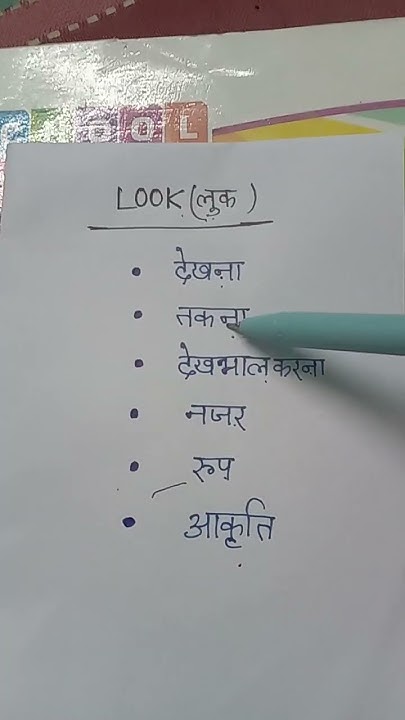 LOOK (लुक )
• देखना
• तकना
• देखभाल करना
• नजर
• रुप
• आकृति